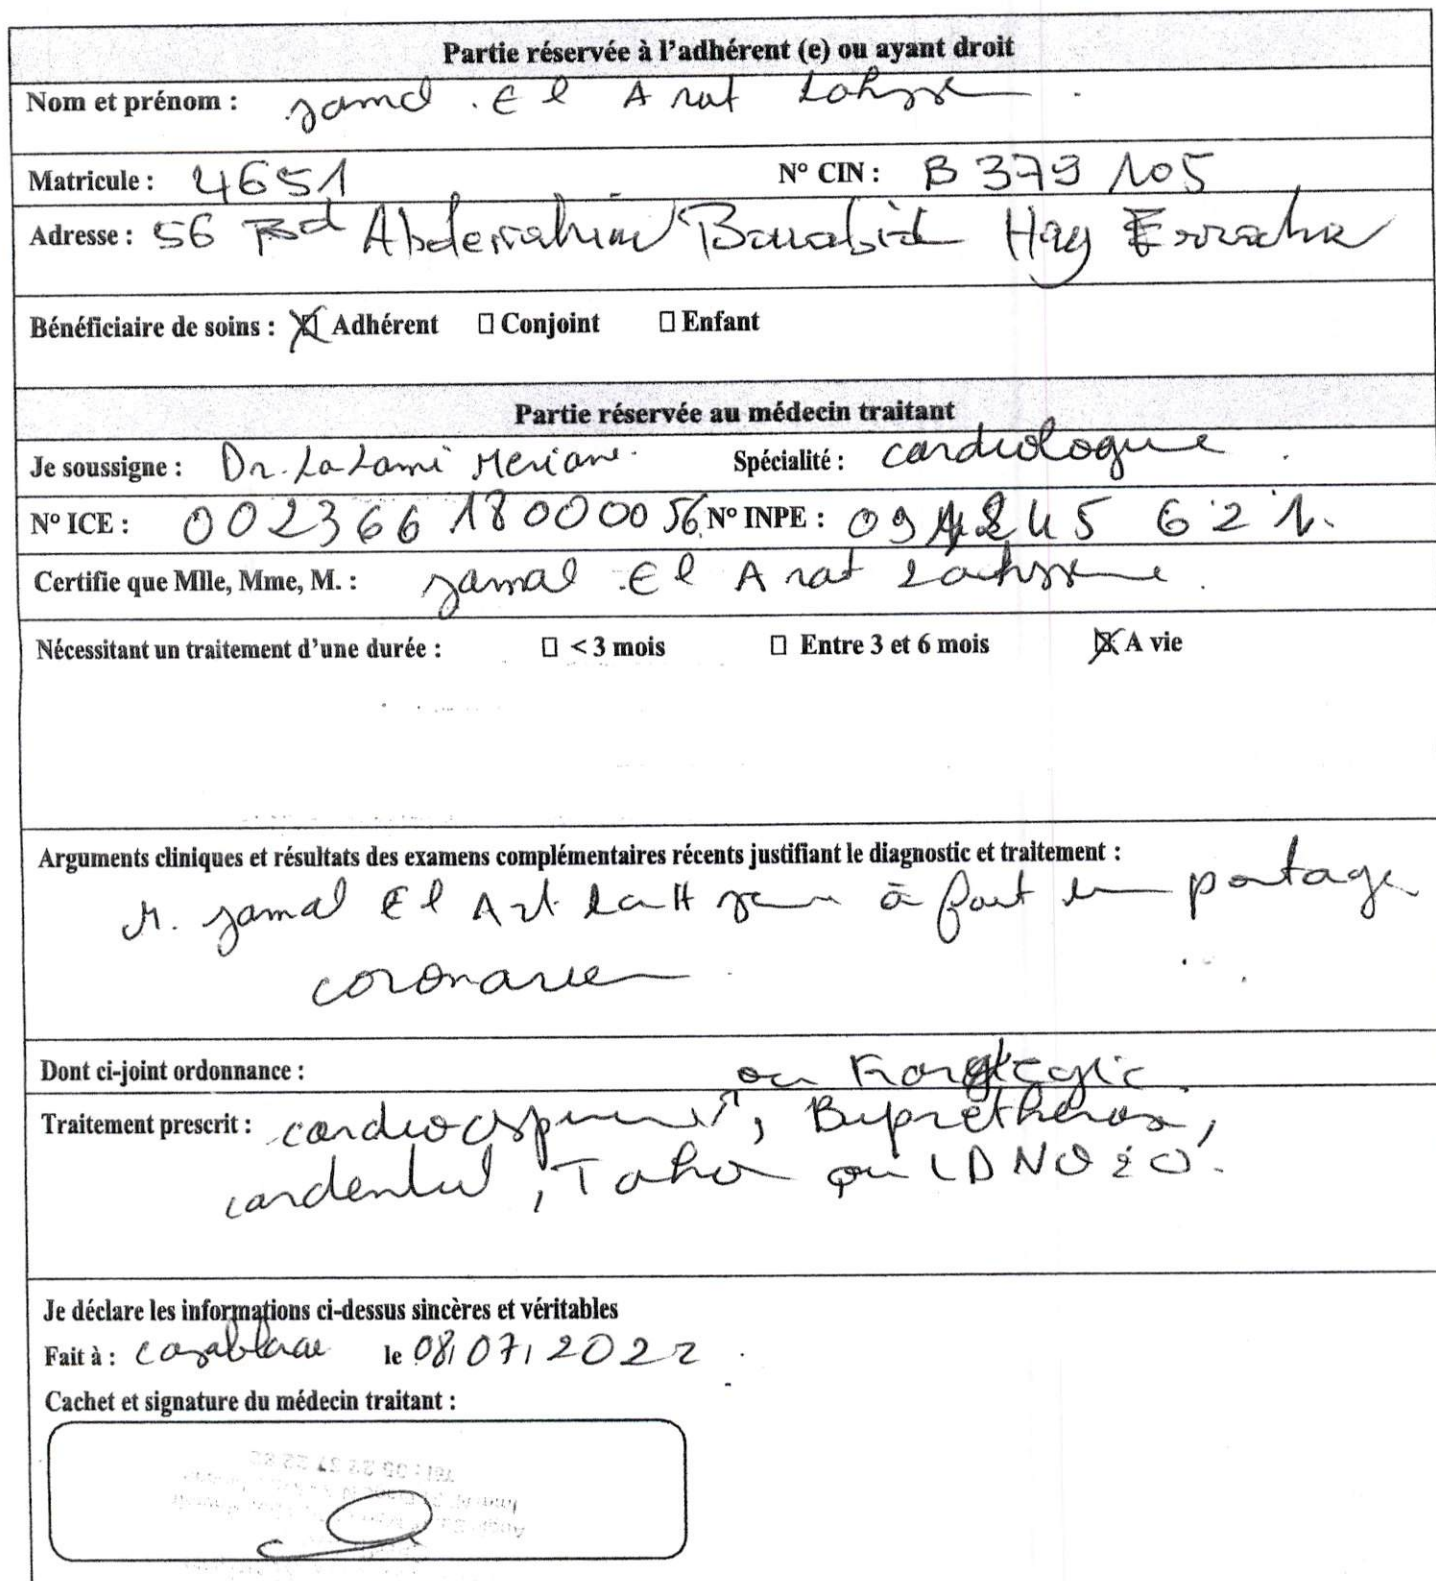 Partie réservée à l'adhérent (e) ou ayant droit
Nom et prénom : Jamal El Arat Lahssen
Matricule : 4651 N° CIN : B 379 105
Adresse : 56 Bd Abderrahim Bouabid Hay Erraha
Bénéficiaire de soins : ☒ Adhérent ☐ Conjoint ☐ Enfant
Partie réservée au médecin traitant
Je soussigne : Dr. Lalami Meriam. Spécialité : cardiologue.
N° ICE : 002366180000056 N° INPE :
Certifie que Mlle, Mme, M. : Jamal El Arat Lahssene.
Nécessitant un traitement d'une durée : ☐ < 3 mois ☐ Entre 3 et 6 mois ☒ A vie
Arguments cliniques et résultats des examens complémentaires récents justifiant le diagnostic et traitement :
M. Jamal El Art à fait un pontage
coronarien
Dont ci-joint ordonnance :
ou Kardegic
Traitement prescrit : cardioaspirine,
cardensiel, Tahor ou
Je déclare les informations ci-dessus sincères et véritables
Fait à : Casablanca le 08/07/2022
Cachet et signature du médecin traitant :